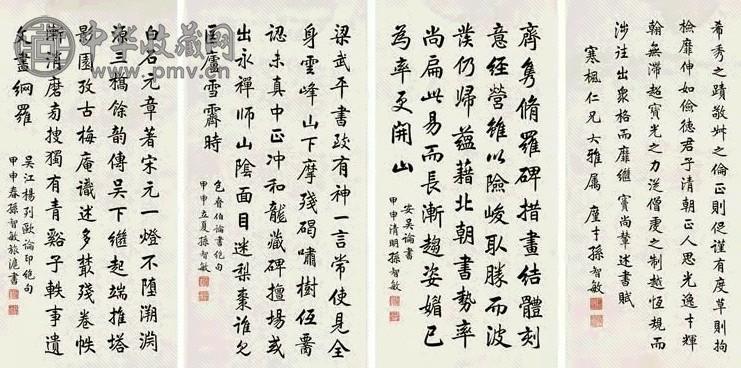 希秀之蹟敬叔之倫正則但謹有度草則拘
檢靡伸如儉德君子清朝正人思光逸才輝
翰無滯越實光之力從僧虔之制越恆規而
涉往出衆格而靡繼 竇尚輦述書賦
寒楓仁兄大雅屬 廑才孫智敏
齊雋脩羅碑措畫結體刻
意經營雖以險峻取勝而波
磔仍歸蘊藉北朝書勢率
尚扁此易而長漸趨姿媚已
為率更開山 安吳論書
甲申清明孫智敏
梁武平書致有神一言常使見全
身雲峰山下摩殘碣嘯樹低鬟
認未真中正沖和龍藏碑擅場或
出永禪師山陰面目迷梨棗誰見
匡廬雪霽時 包眘伯論書絕句
甲申立夏孫智敏
白石元章著宋元一燈不墮溯淵
源三橋餘韵傳吳下繼起端推塔
影園孜古梅庵識述多叢殘卷帙
漸消磨旁搜獨有青谿子軼事遺
文盡網羅 吳江楊列歐論印絕句
甲申春孫智敏旅滬書
中华收藏网
www.pmv.cn